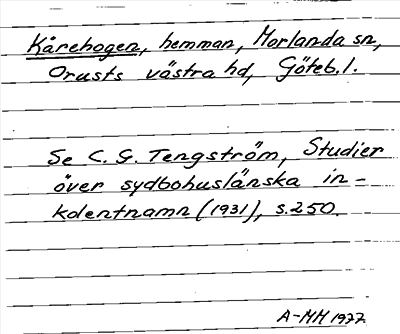 Kårehogen, hemman, Morlanda sn,
Orusts västra hd, Göteb. l.
Se C. G. Tengström, Studier
över sydbohuslänska in-
kolentnamn (1931), s. 250.
A-MH 1977